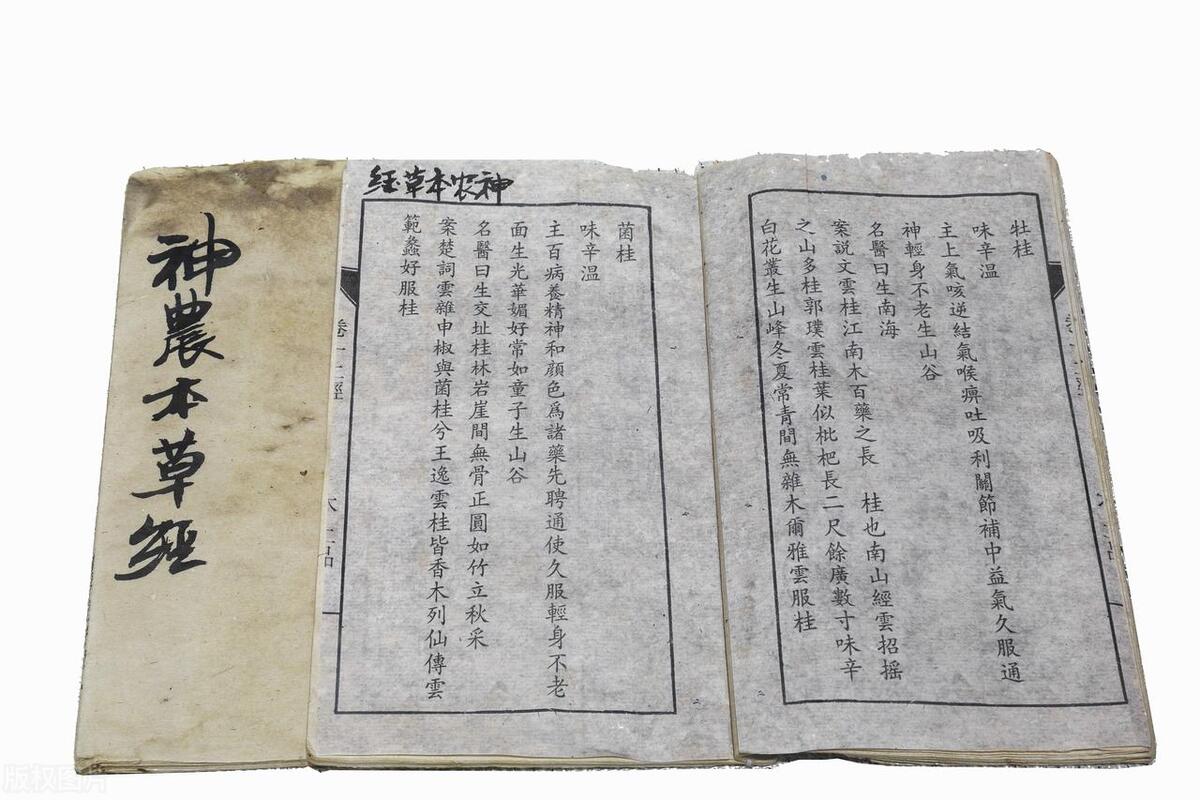 神農本草經
牡桂
味辛溫
主上氣咳逆結氣喉痹吐吸利關節補中益氣久服通
神輕身不老生山谷
名醫曰生南海
案説文雲桂江南木百藥之長 桂也南山經雲招摇
之山多桂郭璞雲桂葉似枇杷長二尺餘廣數寸味辛
白花叢生山峰冬夏常青間無雜木爾雅雲服桂
神农本草經
菌桂
味辛溫
主百病養精神和顔色爲諸藥先聘通使久服輕身不老
面生光華媚好常如童子生山谷
名醫曰生交址桂林岩崖間無骨正圓如竹立秋采
案楚詞雲雜申椒與菌桂兮王逸雲桂皆香木列仙傳雲
範蠡好服桂
版权图片